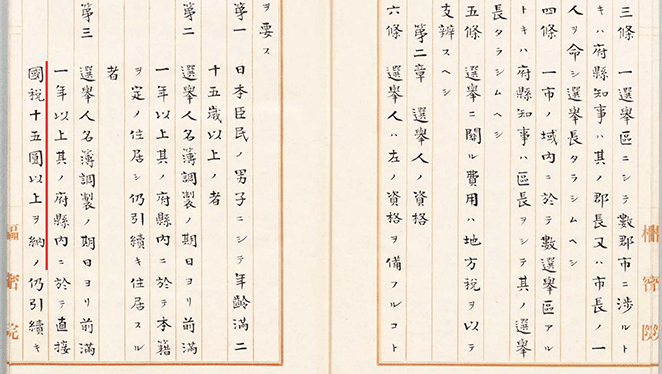 三條 一選擧區ニシテ數郡市ニ涉ルト
キハ府縣知事ハ其ノ郡長又ハ市長ノ一
人ヲ命シ選擧長タラシムヘシ
四條 一市ノ域内ニ於テ數選擧區アル
トキハ府縣知事ハ區長ヲシテ其ノ選擧
長タラシムヘシ
五條 選擧ニ關ル費用ハ地方稅ヲ以テ
支辨スヘシ
第二章 選擧人ノ資格
六條 選擧人ハ左ノ資格ヲ備フルコト
ヲ要ス
第一 日本臣民ノ男子ニシテ年齡滿二
十五歲以上ノ者
第二 選擧人名簿調製ノ期日ヨリ前滿
一年以上其ノ府縣内ニ於テ本籍
ヲ定メ住居シ仍引續キ住居スル
者
第三 選擧人名簿調製ノ期日ヨリ前滿
一年以上其ノ府縣内ニ於テ直接
國稅十五圓以上ヲ納メ仍引續キ
樞密院